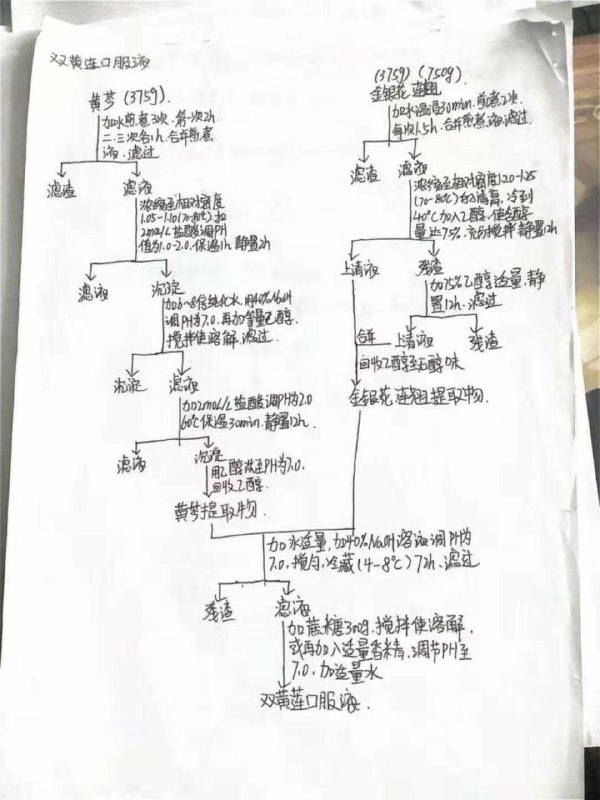 双黄莲口服液
黄芩(375g).
加水煎煮3次.第一次2h.
二、三次各1h.合并煎煮
液.滤过
滤渣
滤液
浓缩至相对密度
1.05-1.10(70-80℃)加
2mol/L盐酸调PH
值为1.0-2.0.保温1h.静置12h
滤液
沉淀
加6~8倍纯化水.用40%NaOH
调PH为7.0.再加等量乙醇.
搅拌使溶解.滤过.
沉淀
滤液
加2mol/L盐酸调PH为2.0
60℃保温30min.静置12h.
滤液
沉淀
用乙醇洗至PH为7.0.
回收乙醇.
黄芩提取物.
(375g)(750g)
金银花 连翘
加水温浸30min.煎煮2次.
每次1.5h.合并煎煮液.滤过.
滤渣
滤液
浓缩至相对密度1.20-1.25
(70-80℃)的清膏.冷到
40℃加入乙醇.使含醇
量达75%.充分搅拌静置12h
上清液
残渣
加75%乙醇适量.静
置12h.滤过
合并
上清液
残渣
回收乙醇至无醇味
金银花.连翘提取物.
加水适量,加40%NaOH溶液调PH为
7.0,搅匀,冷藏(4-8℃)72h.滤过
残渣
滤液
加蔗糖300g.搅拌使溶解.
或再加入适量香精.调节PH至
7.0.加适量水
双黄莲口服液.